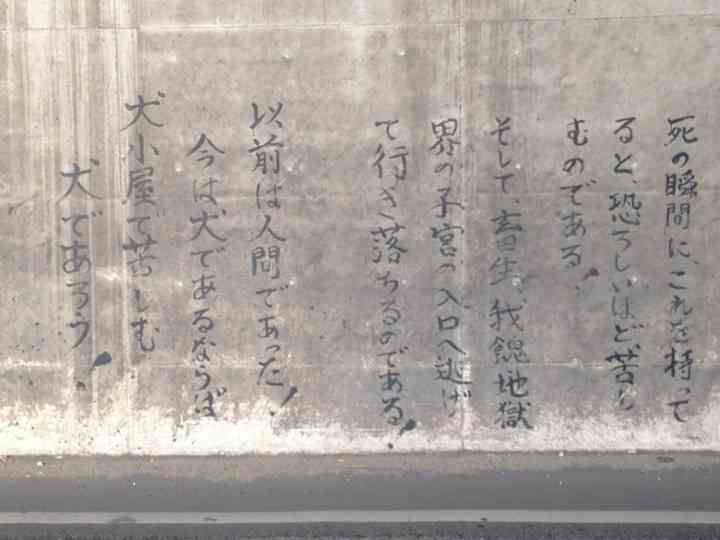 死の瞬間に、これを持って
ると、恐ろしいほど、苦し
むのである!
そして、畜生、我餓地獄
界の子宮の入口へ逃げ
て行き落ちるのである!
以前は人間であった!
今は犬であるならば
犬小屋で苦しむ
犬であろう!